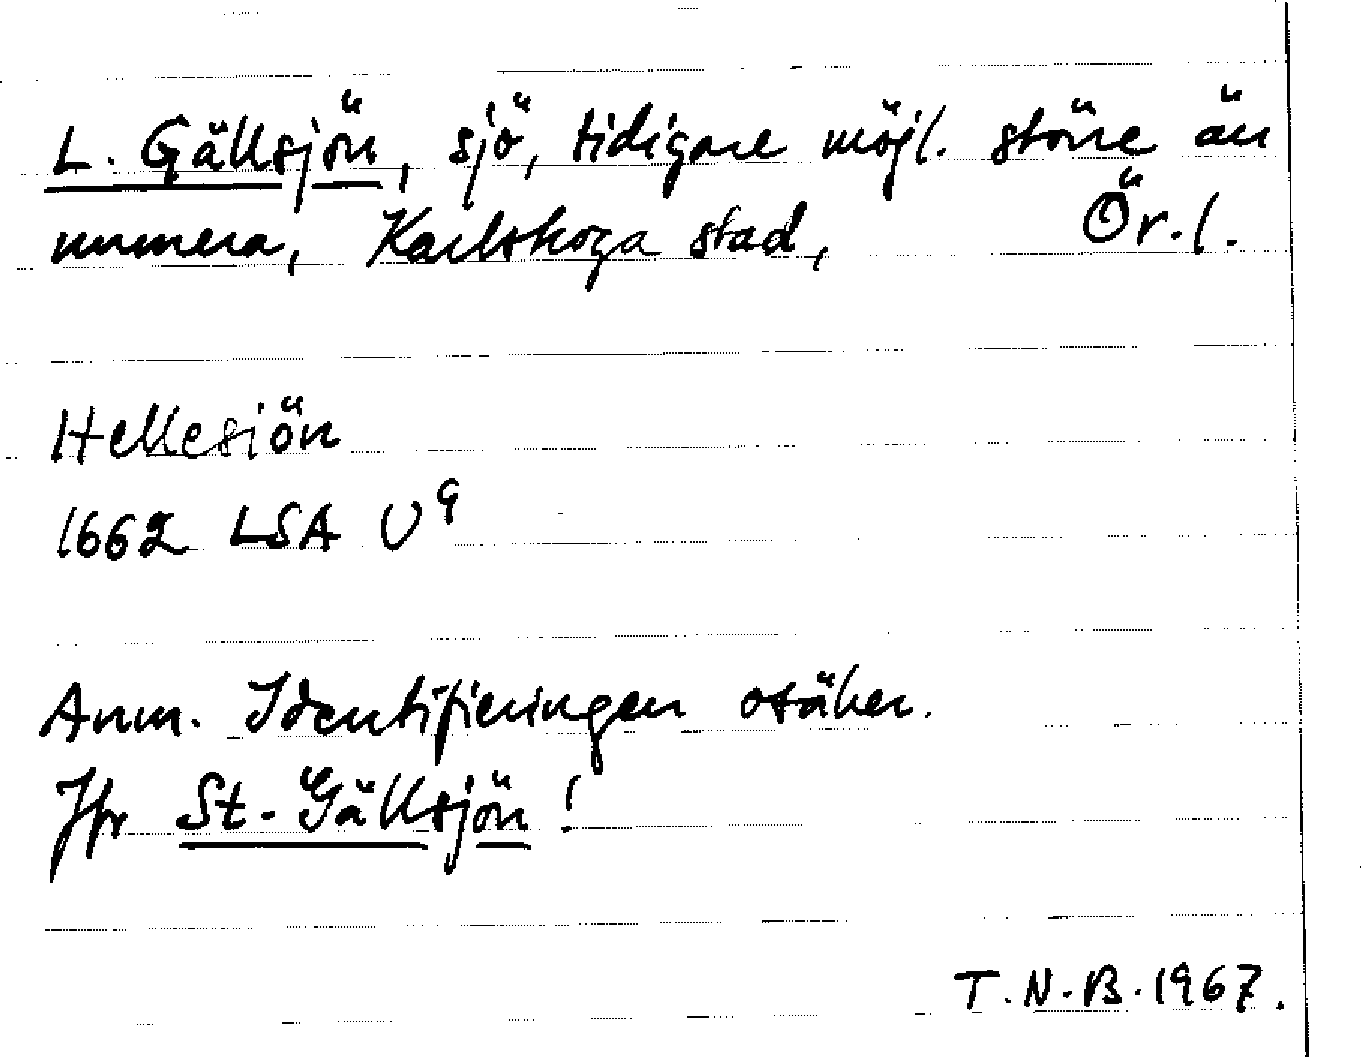 L. Gällsjön, sjö, tidigare möjl. större än
numera, Karlskoga stad, Ör. l.
Hellesiön
1662 LSA U9
Anm. Identifieringen osäker.
Jfr St. Gällsjön!
T.N.B. 1967.